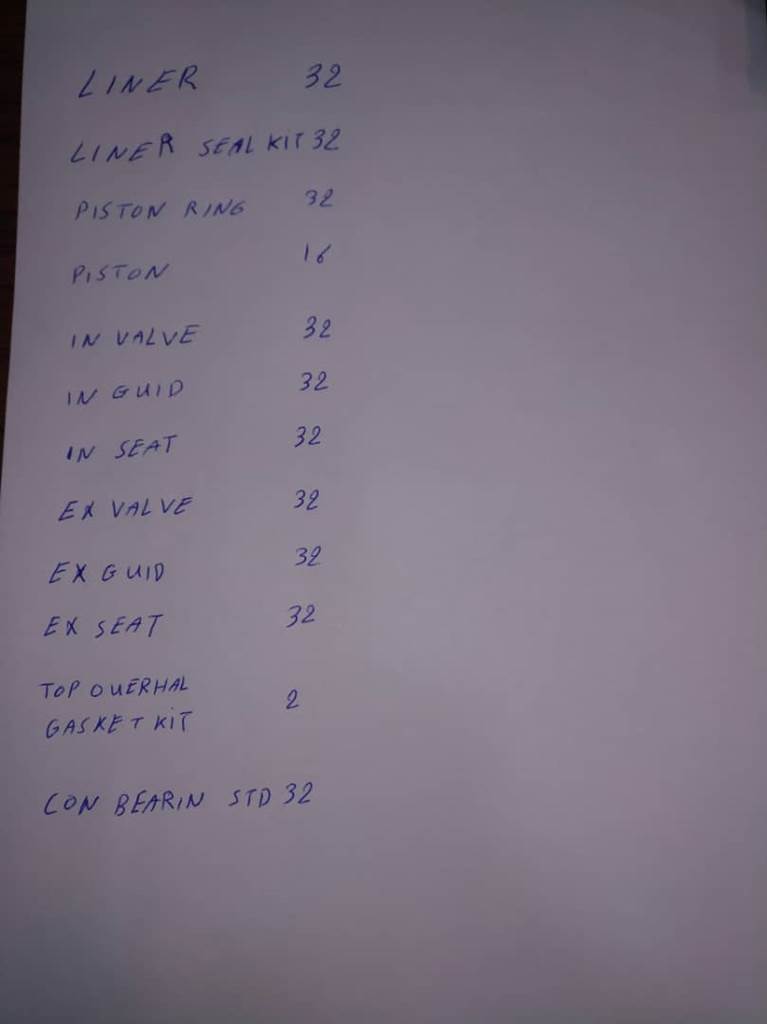 LINER 32
LINER SEAL KIT 32
PISTON RING 32
PISTON 16
IN VALVE 32
IN GUID 32
IN SEAT 32
EX VALVE 32
EX GUID 32
EX SEAT 32
TOP OUERHAL
GASKET KIT 2
CON BEARIN STD 32